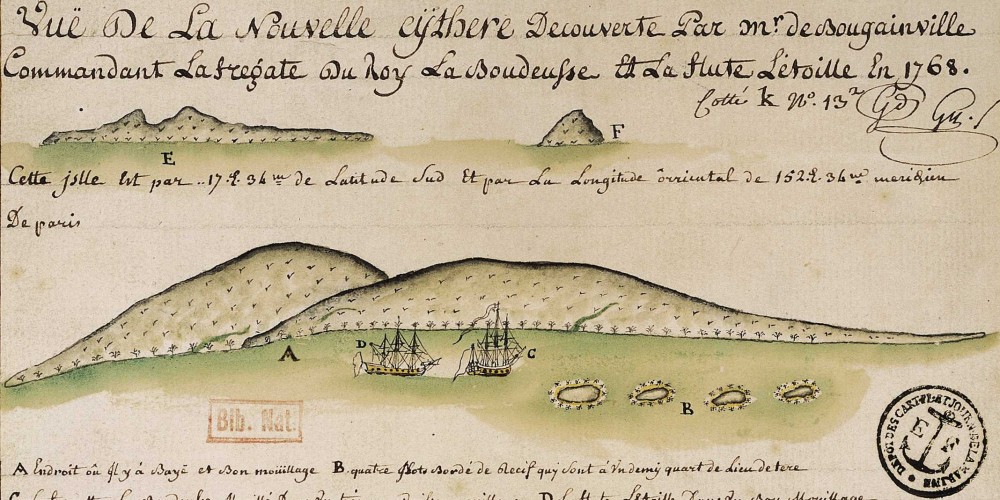 Vuë De La Nouvelle cÿthere Decouverte Par mr. de Bougainville
Commandant La fregate Du Roy La Boudeusse Et La flute Letoille En 1768.
Cotté k No. 13
E
F
Cette jslle Est par ..17.D. 34 m de Latitude Sud Et par La Longitude orriental de 152.D. 34 m meridien
De paris
A
D
C
B
Bib. Nat.
DEPOT DES CARTES ET JOURNX DE LA MARINE
A Endroit oû jl y á Bayë et Bon moüillage B. quatre jlots Bordé de Recif quy sont á un demy quart de Lieu de tere